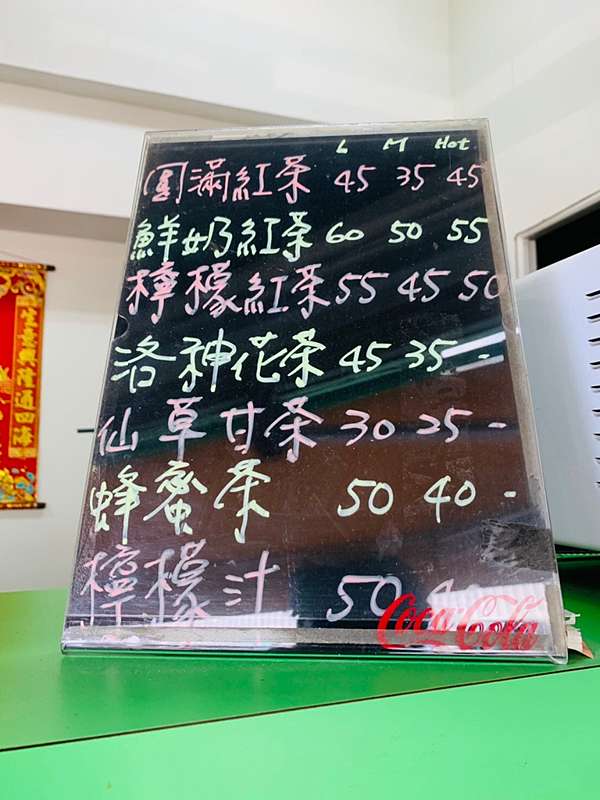 L M Hot
圓滿紅茶 45 35 45
鮮奶紅茶 60 50 55
檸檬紅茶 55 45 50
洛神花茶 45 35 -
仙草甘茶 30 25 -
蜂蜜茶 50 40 -
檸檬汁 50
Coca-Cola
生意興隆通四海